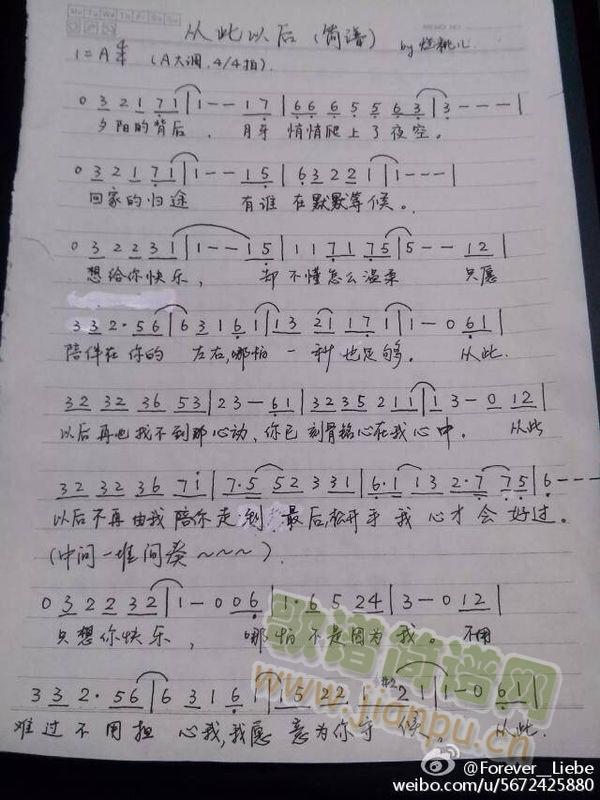 Mo Tu We Th Fr Sa Su
MEMO NO.
从此以后 (简谱) by 烂桃儿
1=A 4/4 (A大调, 4/4拍)
0 3 2 1 7 1 | 1 - - 1 7 | 6 6 6 5 5 6 3 | 3 - - - |
夕阳的背后, 月牙 悄悄爬上了夜空。
0 3 2 1 7 1 | 1 - - 1 5 | 6 3 2 2 1 | 1 - - - |
回家的归途 有谁 在默默等候。
0 3 2 2 3 1 | 1 - - 1 5 | 1 1 7 1 7 5 | 5 - - 1 2 |
想给你快乐, 却不懂怎么温柔 只愿
3 3 2 · 5 6 | 6 3 1 6 1 | 1 3 2 1 1 7 1 | 1 - 0 6 1 |
陪伴在你的 左右,哪怕一种也足够。 从此
3 2 3 2 3 6 5 3 | 2 3 - 6 1 | 3 2 3 5 2 1 1 | 1 3 - 0 1 2 |
以后再也找不到那心动、你已刻骨铭心在我心中。 从此
3 2 3 2 3 6 7 i | 7 · 5 5 2 3 3 1 | 6 · 1 1 3 2 · 7 7 5 | 6 - - -
以后不再由我陪你走到最后,松开手我心才会好过。
(中间一堆间奏~~~~)
0 3 2 2 3 2 | 1 - 0 0 6 | 1 · 6 5 2 4 | 3 - 0 1 2 |
只想你快乐, 哪怕不是因为我。 不用
3 3 2 · 5 6 | 6 3 1 6 1 | 1 5 2 2 #2 2 1 | 1 - 0 6 1 |
难过不用担 心我,我愿 意为你守 候。 从此
歌谱简谱网
www.jianpu.cn
@Forever__Liebe
weibo.com/u/5672425880